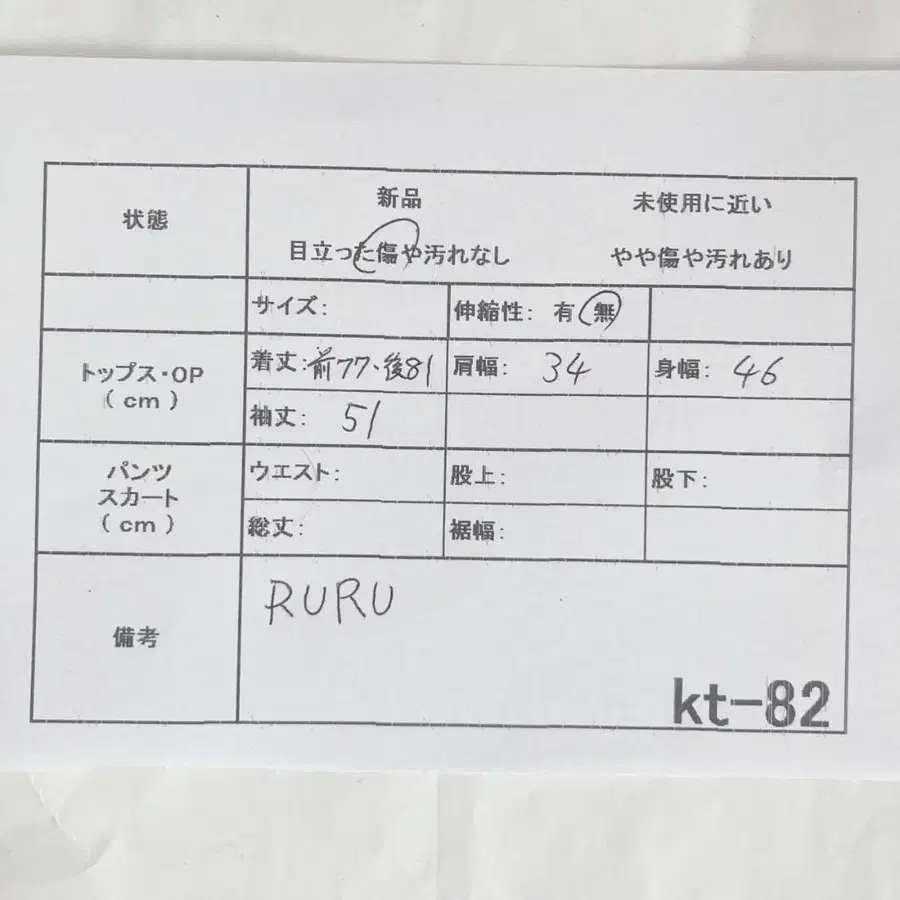 状態
新品 未使用に近い
目立った傷や汚れなし やや傷や汚れあり
サイズ: 伸縮性: 有 無
トップス・OP
(cm)
着丈:前77、後81 肩幅: 34 身幅: 46
袖丈: 51
パンツ
スカート
(cm)
ウエスト: 股上: 股下:
総丈: 裾幅:
備考
RURU
kt-82